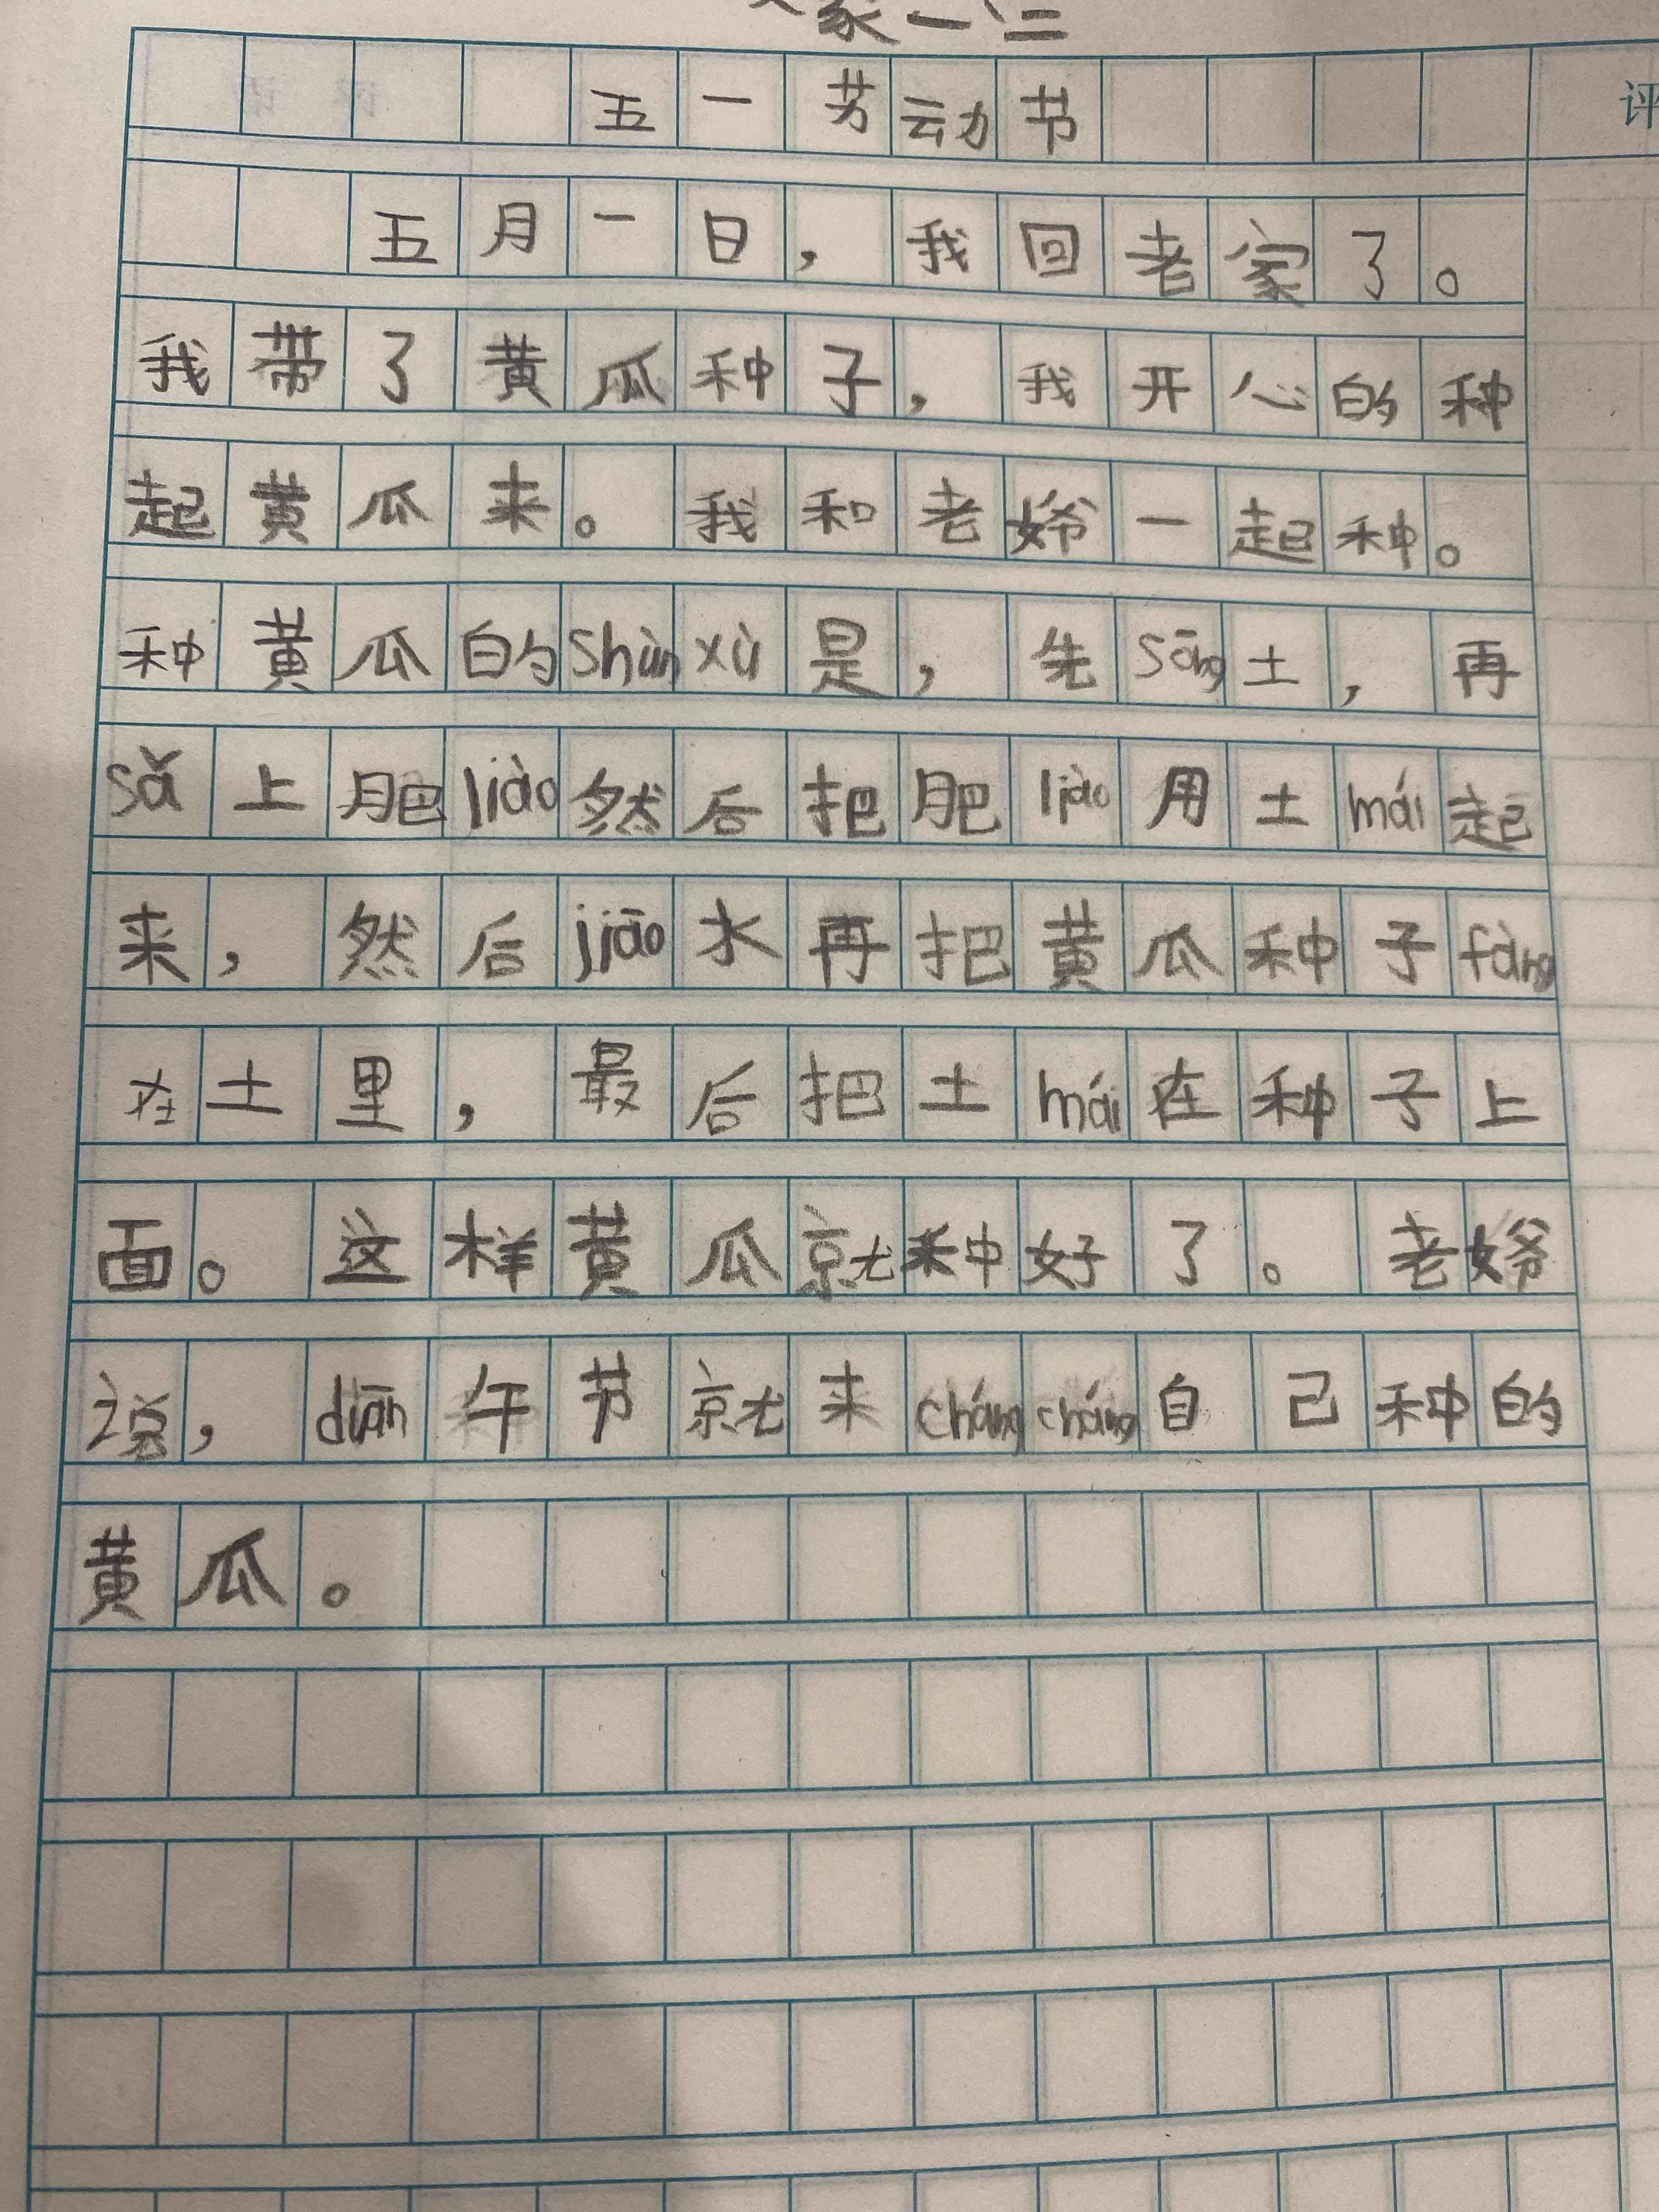 家一
五一劳动节
评
五月一日，我回老家了。
我带了黄瓜种子，我开心的种
起黄瓜来。我和老爷一起种。
种黄瓜的shùn xù是，先sōng土，再
sǎ上肥liào然后把肥liào用土mái起
来，然后jiāo水再把黄瓜种子fàng
在土里，最后把土mái在种子上
面。这样黄瓜就种好了。老爷
说，duān午节就来cháng cháng自己种的
黄瓜。